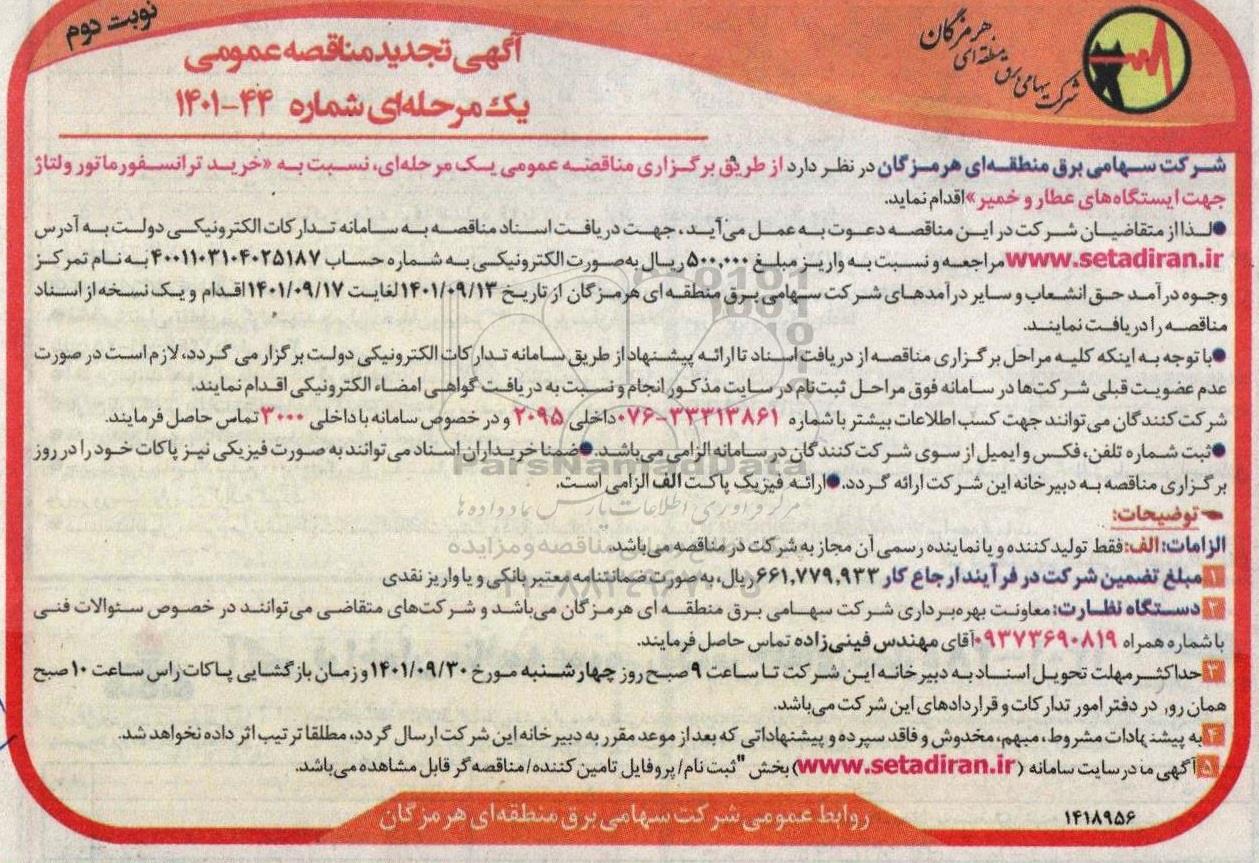 نوبت دوم
شرکت سهامی برق منطقه ای هرمزگان
آگهی تجدید مناقصه عمومی
یک مرحله‌ای شماره ۴۴-۱۴۰۱
شرکت سهامی برق منطقه‌ای هرمزگان در نظر دارد از طریق برگزاری مناقصه عمومی یک مرحله‌ای، نسبت به «خرید ترانسفورماتور ولتاژ
جهت ایستگاه‌های عطار و خمیر» اقدام نماید.
●لذا از متقاضیان شرکت در این مناقصه دعوت به عمل می‌آید، جهت دریافت اسناد مناقصه به سامانه تدارکات الکترونیکی دولت به آدرس
www.setadiran.ir مراجعه و نسبت به واریز مبلغ ۵۰۰,۰۰۰ ریال به‌صورت الکترونیکی به شماره حساب ۴۰۰۱۱۰۳۱۰۴۰۲۵۱۸۷ به نام تمرکز
وجوه درآمد حق انشعاب و سایر درآمدهای شرکت سهامی برق منطقه ای هرمزگان از تاریخ ۱۴۰۱/۰۹/۱۳ لغایت ۱۴۰۱/۰۹/۱۷ اقدام و یک نسخه از اسناد
مناقصه را دریافت نمایند.
●با توجه به اینکه کلیه مراحل برگزاری مناقصه از دریافت اسناد تا ارائه پیشنهاد از طریق سامانه تدارکات الکترونیکی دولت برگزار می گردد، لازم است در صورت
عدم عضویت قبلی شرکت‌ها در سامانه فوق مراحل ثبت‌نام در سایت مذکور انجام و نسبت به دریافت گواهی امضاء الکترونیکی اقدام نمایند.
شرکت کنندگان می‌توانند جهت کسب اطلاعات بیشتر با شماره ۳۳۳۱۳۸۶۱-۰۷۶ داخلی ۲۰۹۵ و در خصوص سامانه با داخلی ۳۰۰۰ تماس حاصل فرمایند.
●ثبت شماره تلفن، فکس و ایمیل از سوی شرکت کنندگان در سامانه الزامی می‌باشد. ●ضمنا خریداران اسناد می‌توانند به صورت فیزیکی نیز پاکات خود را در روز
برگزاری مناقصه به دبیرخانه این شرکت ارائه گردد. ●ارائه فیزیک پاکت الف الزامی است.
توضیحات:
الزامات: الف: فقط تولیدکننده و یا نماینده رسمی آن مجاز به شرکت در مناقصه می‌باشد.
۱ مبلغ تضمین شرکت در فرآیند ارجاع کار ۶۶۱,۷۷۹,۹۳۳ ریال، به صورت ضمانتنامه معتبر بانکی و یا واریز نقدی
۲ دستگاه نظارت: معاونت بهره‌برداری شرکت سهامی برق منطقه ای هرمزگان می‌باشد و شرکت‌های متقاضی می‌توانند در خصوص سئوالات فنی
با شماره همراه ۰۹۳۷۳۶۹۰۸۱۹ آقای مهندس فینی‌زاده تماس حاصل فرمایند.
۳ حداکثر مهلت تحویل اسناد به دبیرخانه این شرکت تا ساعت ۹ صبح روز چهارشنبه مورخ ۱۴۰۱/۰۹/۳۰ و زمان بازگشایی پاکات راس ساعت ۱۰ صبح
همان روز در دفتر امور تدارکات و قراردادهای این شرکت می‌باشد.
۴ به پیشنهادات مشروط، مبهم، مخدوش و فاقد سپرده و پیشنهاداتی که بعد از موعد مقرر به دبیرخانه این شرکت ارسال گردد، مطلقا ترتیب اثر داده نخواهد شد.
۵ آگهی ما در سایت سامانه (www.setadiran.ir) بخش "ثبت نام/ پروفایل تامین کننده/ مناقصه گر قابل مشاهده می‌باشد.
۱۴۱۸۹۵۶
روابط عمومی شرکت سهامی برق منطقه‌ای هرمزگان
ParsNamadData